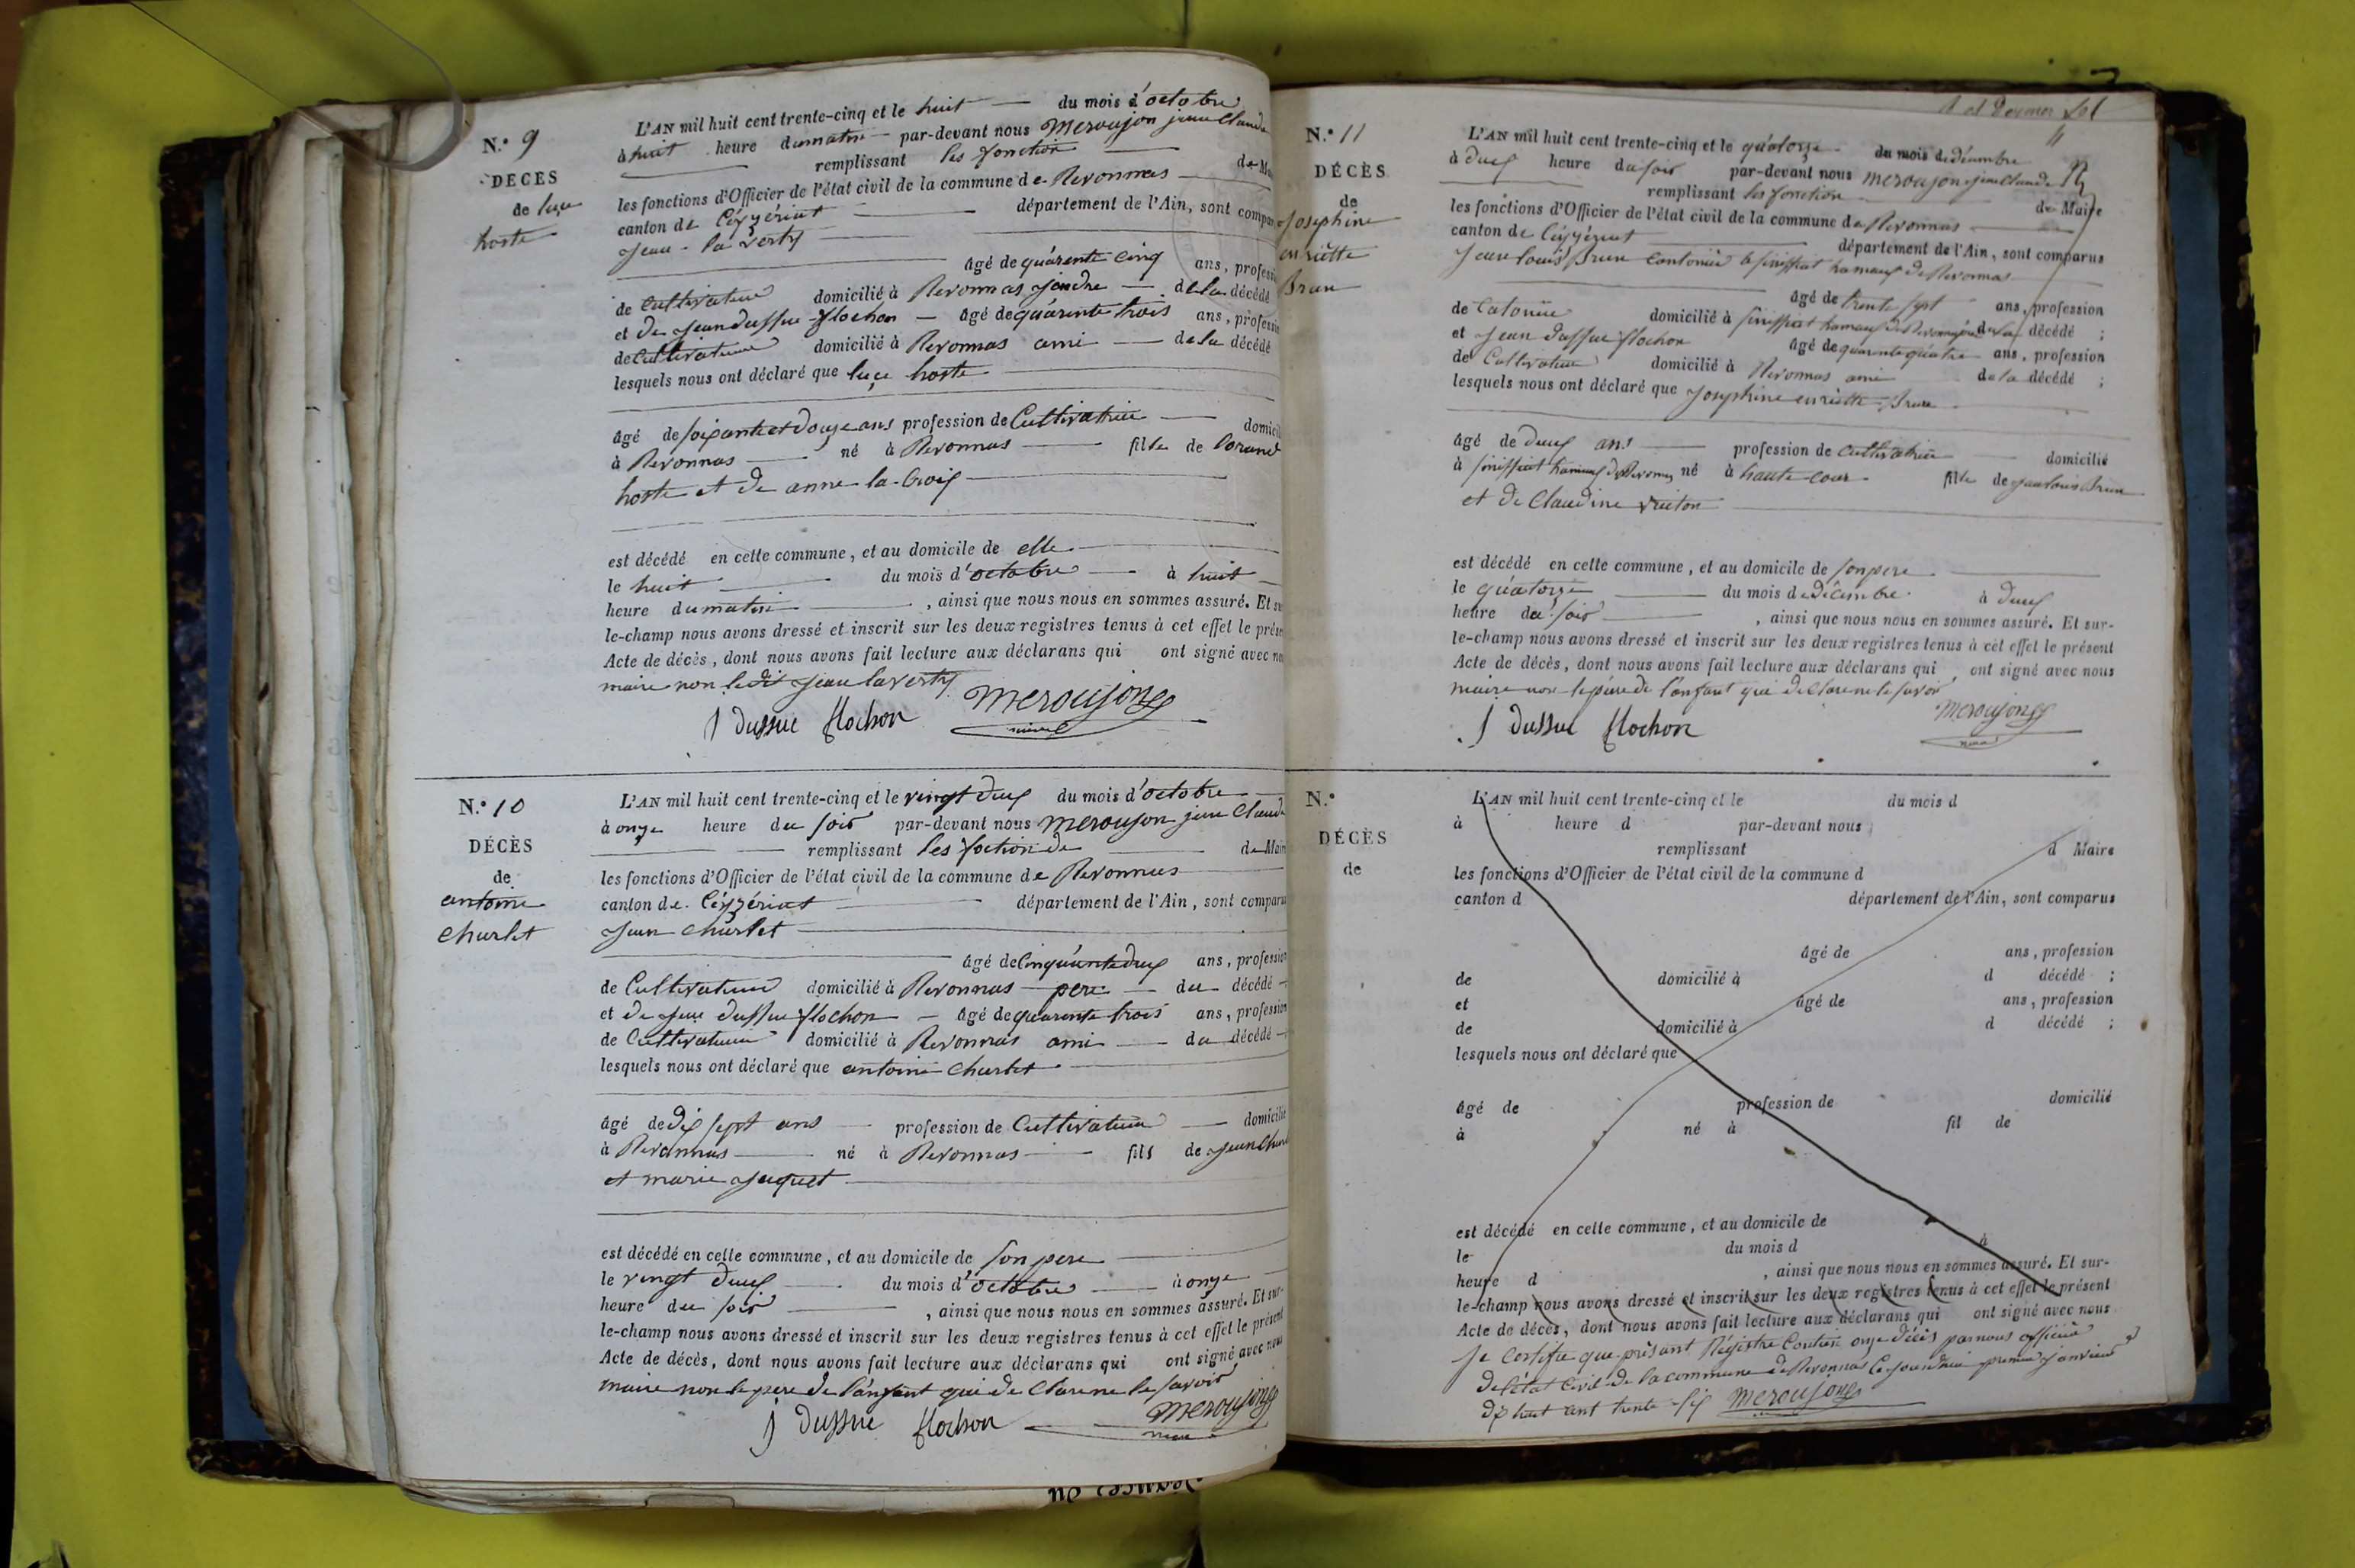 N.º 9
DÉCÈS
de luce
hoste
L'AN mil huit cent trente-cinq et le huit du mois d'octobre
à huit heure du matin par-devant nous Meroujon jean Claude
remplissant les fonction de Mai
les fonctions d'Officier de l'état civil de la commune de Revonnas
canton de Céyzériat département de l'Ain, sont compar
Jean laverty
âgé de quárente cinq ans, professi
de Cultivateur domicilié à Revonnas jendre de la décédé
et de Jean dussue flochon âgé de quárente trois ans, professi
de Cultivateur domicilié à Revonnas ami de la décédé
lesquels nous ont déclaré que luce hoste
âgé de soixante et douze ans profession de Cultivatrice domicil
à Revonnas né à Revonnas fille de lorand
hoste et de anne la Croix
est décédé en cette commune, et au domicile de elle
le huit du mois d'octobre à huit
heure du matin , ainsi que nous nous en sommes assuré. Et su
le-champ nous avons dressé et inscrit sur les deux registres tenus à cet effet le prése
Acte de décès, dont nous avons fait lecture aux déclarans qui ont signé avec no
maire non ledit Jean laverty
J Dussue flochon Meroujon
maire
N.º 10
DÉCÈS
de
antoine
Churlet
L'AN mil huit cent trente-cinq et le vingt deux du mois d'octobre
à onze heure du soir par-devant nous Meroujon jean Claude
remplissant les foction de de Mair
les fonctions d'Officier de l'état civil de la commune de Revonnas
canton de Céyzériat département de l'Ain, sont comparu
Jean Churlet
âgé de Cinquánte deux ans, profession
de Cultivateur domicilié à Revonnas pere du décédé
et de Jean dussue flochon âgé de quárente trois ans, profession
de Cultivateur domicilié à Revonnas ami du décédé
lesquels nous ont déclaré que antoine Churlet
âgé de dix sept ans profession de Cultivateur domicilié
à Revonnas né à Revonnas fils de Jean Churl
et marie Juquet
est décédé en cette commune, et au domicile de son pere
le vingt deux du mois d'octobre à onze
heure du soir , ainsi que nous nous en sommes assuré. Et sur-
le-champ nous avons dressé et inscrit sur les deux registres tenus à cet effet le présent
Acte de décès, dont nous avons fait lecture aux déclarans qui ont signé avec nous
maire non le pere de l'ánfant qui declare ne le savoir
J Dussue flochon Meroujon
maire
N.º 11
DÉCÈS
de
Josephine
enriètte
Brun
L'AN mil huit cent trente-cinq et le quátorze du mois de décembre
à deux heure du soir par-devant nous Meroujon jean Claude
remplissant les fonction de Maire
les fonctions d'Officier de l'état civil de la commune de Revonnas
canton de Céyzériat département de l'Ain, sont comparus
Jean louis Brun
âgé de trente sept ans, profession
de domicilié à décédé ;
et Jean dussue flochon âgé de quárente quátre ans, profession
de Cultivateur domicilié à Revonnas ami de la décédé ;
lesquels nous ont déclaré que Josephine enriètte Brun
âgé de deux ans profession de Cultivatrice domicilié
à né à haute cour fille de jean louis Brun
et de Claudine
est décédé en cette commune, et au domicile de son pere
le quátorze du mois de décembre à deux
heure du soir , ainsi que nous nous en sommes assuré. Et sur-
le-champ nous avons dressé et inscrit sur les deux registres tenus à cet effet le présent
Acte de décès, dont nous avons fait lecture aux déclarans qui ont signé avec nous
maire non le pére de l'ánfant qui declare ne le savoir
J Dussue flochon Meroujon
maire
N.º
DÉCÈS
de
L'AN mil huit cent trente-cinq et le du mois d
à heure d par-devant nous
remplissant d Maire
les fonctions d'Officier de l'état civil de la commune d
canton d département de l'Ain, sont comparus
âgé de ans, profession
de domicilié à d décédé ;
et âgé de ans, profession
de domicilié à d décédé ;
lesquels nous ont déclaré que
âgé de profession de domicilié
à né à fil de
est décédé en cette commune, et au domicile de
le du mois d à
heure d , ainsi que nous nous en sommes assuré. Et sur-
le-champ nous avons dressé et inscrit sur les deux registres tenus à cet effet le présent
Acte de décès, dont nous avons fait lecture aux déclarans qui ont signé avec nous
Je Certifie que présant Régistre Contien onze décès par nous officier
de l'état Civil de la commune de Revonnas premier janvier
dix huit cent trente six Meroujon